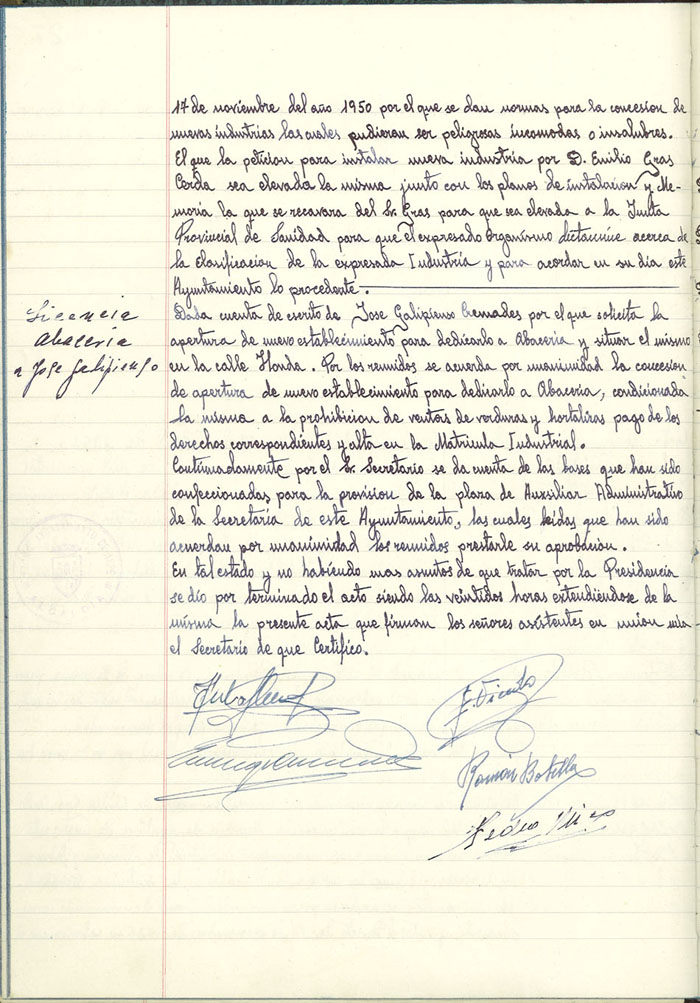 17 de noviembre del año 1950 por el que se dan normas para la concesion de
nuevas industrias las cuales pudieran ser peligrosas incomodas o insalubres.
El que la peticion para instalar nueva industria por D. Emilio Gras
Cerda sea elevada la misma junto con los planos de instalacion y Me-
moria la que se recavara del Sr. Gras para que sea elevada a la Junta
Provincial de Sanidad para que el expresado Organismo dictamine acerca de
la clasificacion de la expresada Industria y para acordar en su dia este
Ayuntamiento lo procedente.
Licencia
Abaceria
a Jose Galipienso
Daba cuenta de escrito de Jose Galipienso Cremades por el que solicita la
apertura de nuevo establecimiento para dedicarlo a Abaceria y situar el mismo
en la calle Honda. Por los reunidos se acuerda por unanimidad la concesion
de apertura de nuevo establecimiento para dedicarlo a Abaceria, condicionada
la misma a la prohibicion de ventas de verduras y hortalizas pago de los
derechos correspondientes y alta en la Matricula Industrial.
Continuadamente por el Sr. Secretario se da cuenta de las bases que han sido
confeccionadas para la provision de la plaza de Auxiliar Administrativo
de la Secretaría de este Ayuntamiento, las cuales leidas que han sido
acuerdan por unanimidad los reunidos prestarle su aprobacion.
En tal estado y no habiendo mas asuntos de que tratar por la Presidencia
se dío por terminado el acto siendo las veintidos horas extendiéndose de la
misma la presente acta que firman los señores asistentes en union mia
el Secretario de que Certifico.
F. Vicente
Román Botella
Pedro